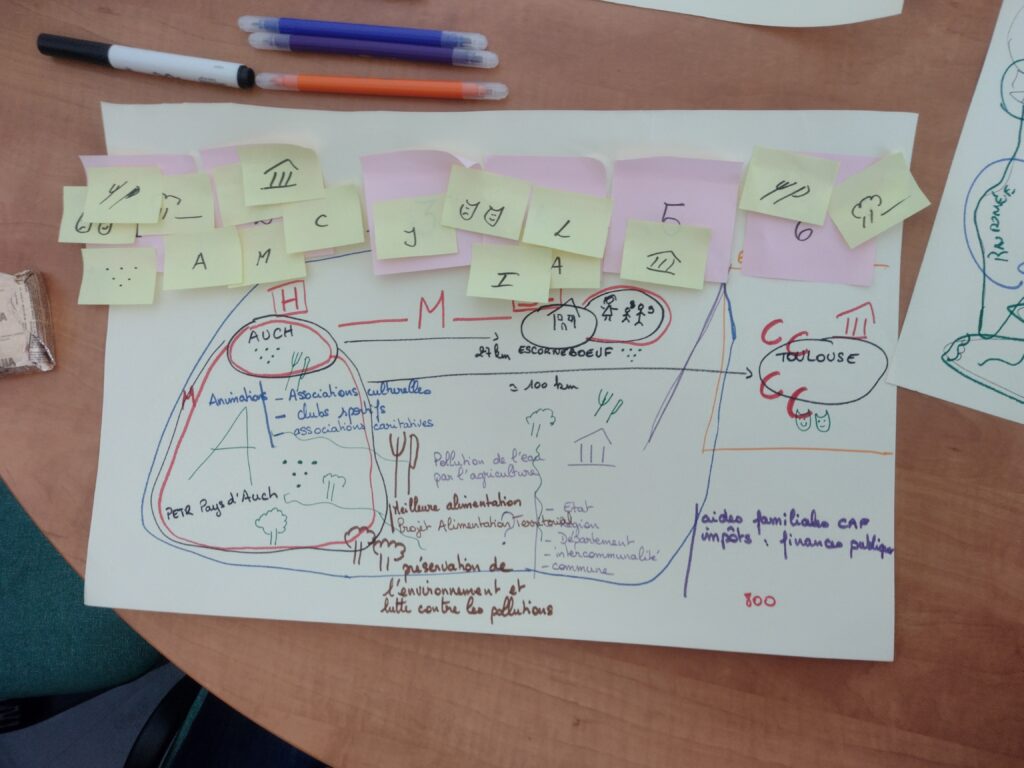 C
A
M
y
L
I
A
5
6
H
M
AUCH
27 km
ESCORNEBOEUF
TOULOUSE
C
C
C
C
≃ 100 km
M
Animations
- Associations culturelles
- clubs sportifs
- associations caritatives
A
PETR Pays d'Auch
Pollution de l'eau
par l'agriculture
Meilleure alimentation
Projet Alimentation Territorial
?
- Etat
- Région
- Département
- intercommunalité
- commune
préservation de
l'environnement et
lutte contre les pollutions
aides familiales CAF
impôts : finances publiques
800
RANDONNÉE